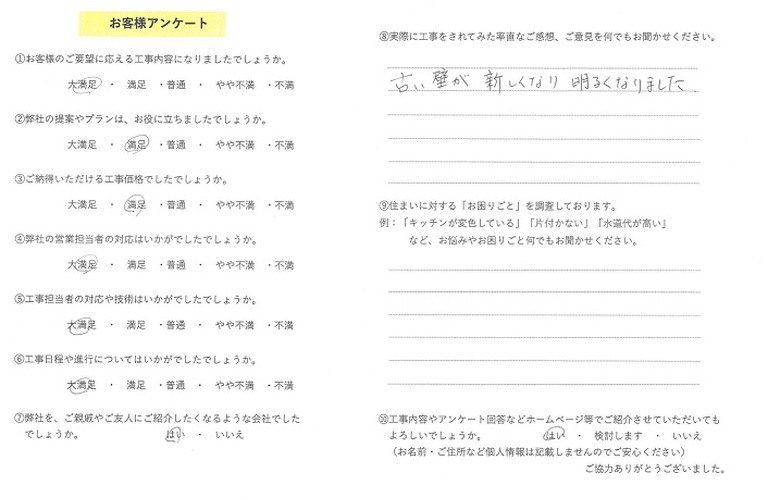 お客様アンケート
①お客様のご要望に応える工事内容になりましたでしょうか。
大満足 ・ 満足 ・普通 ・ やや不満 ・不満
②弊社の提案やプランは、お役に立ちましたでしょうか。
大満足 ・ 満足 ・普通 ・ やや不満 ・不満
③ご納得いただける工事価格でしたでしょうか。
大満足 ・ 満足 ・普通 ・ やや不満 ・不満
④弊社の営業担当者の対応はいかがでしたでしょうか。
大満足 ・ 満足 ・普通 ・ やや不満 ・不満
⑤工事担当者の対応や技術はいかがでしたでしょうか。
大満足 ・ 満足 ・普通 ・ やや不満 ・不満
⑥工事日程や進行についてはいかがでしたでしょうか。
大満足 ・ 満足 ・普通 ・ やや不満 ・不満
⑦弊社を、ご親戚やご友人にご紹介したくなるような会社でした
でしょうか。 はい ・ いいえ
⑧実際に工事をされてみた率直なご感想、ご意見を何でもお聞かせください。
古い壁が 新しくなり 明るくなりました.
⑨住まいに対する「お困りごと」を調査しております。
例：「キッチンが変色している」「片付かない」「水道代が高い」
など、お悩みやお困りごと何でもお聞かせください。
⑩工事内容やアンケート回答などホームページ等でご紹介させていただいても
よろしいでしょうか。 はい ・ 検討します ・ いいえ
（お名前・ご住所など個人情報は記載しませんのでご安心ください）
ご協力ありがとうございました。